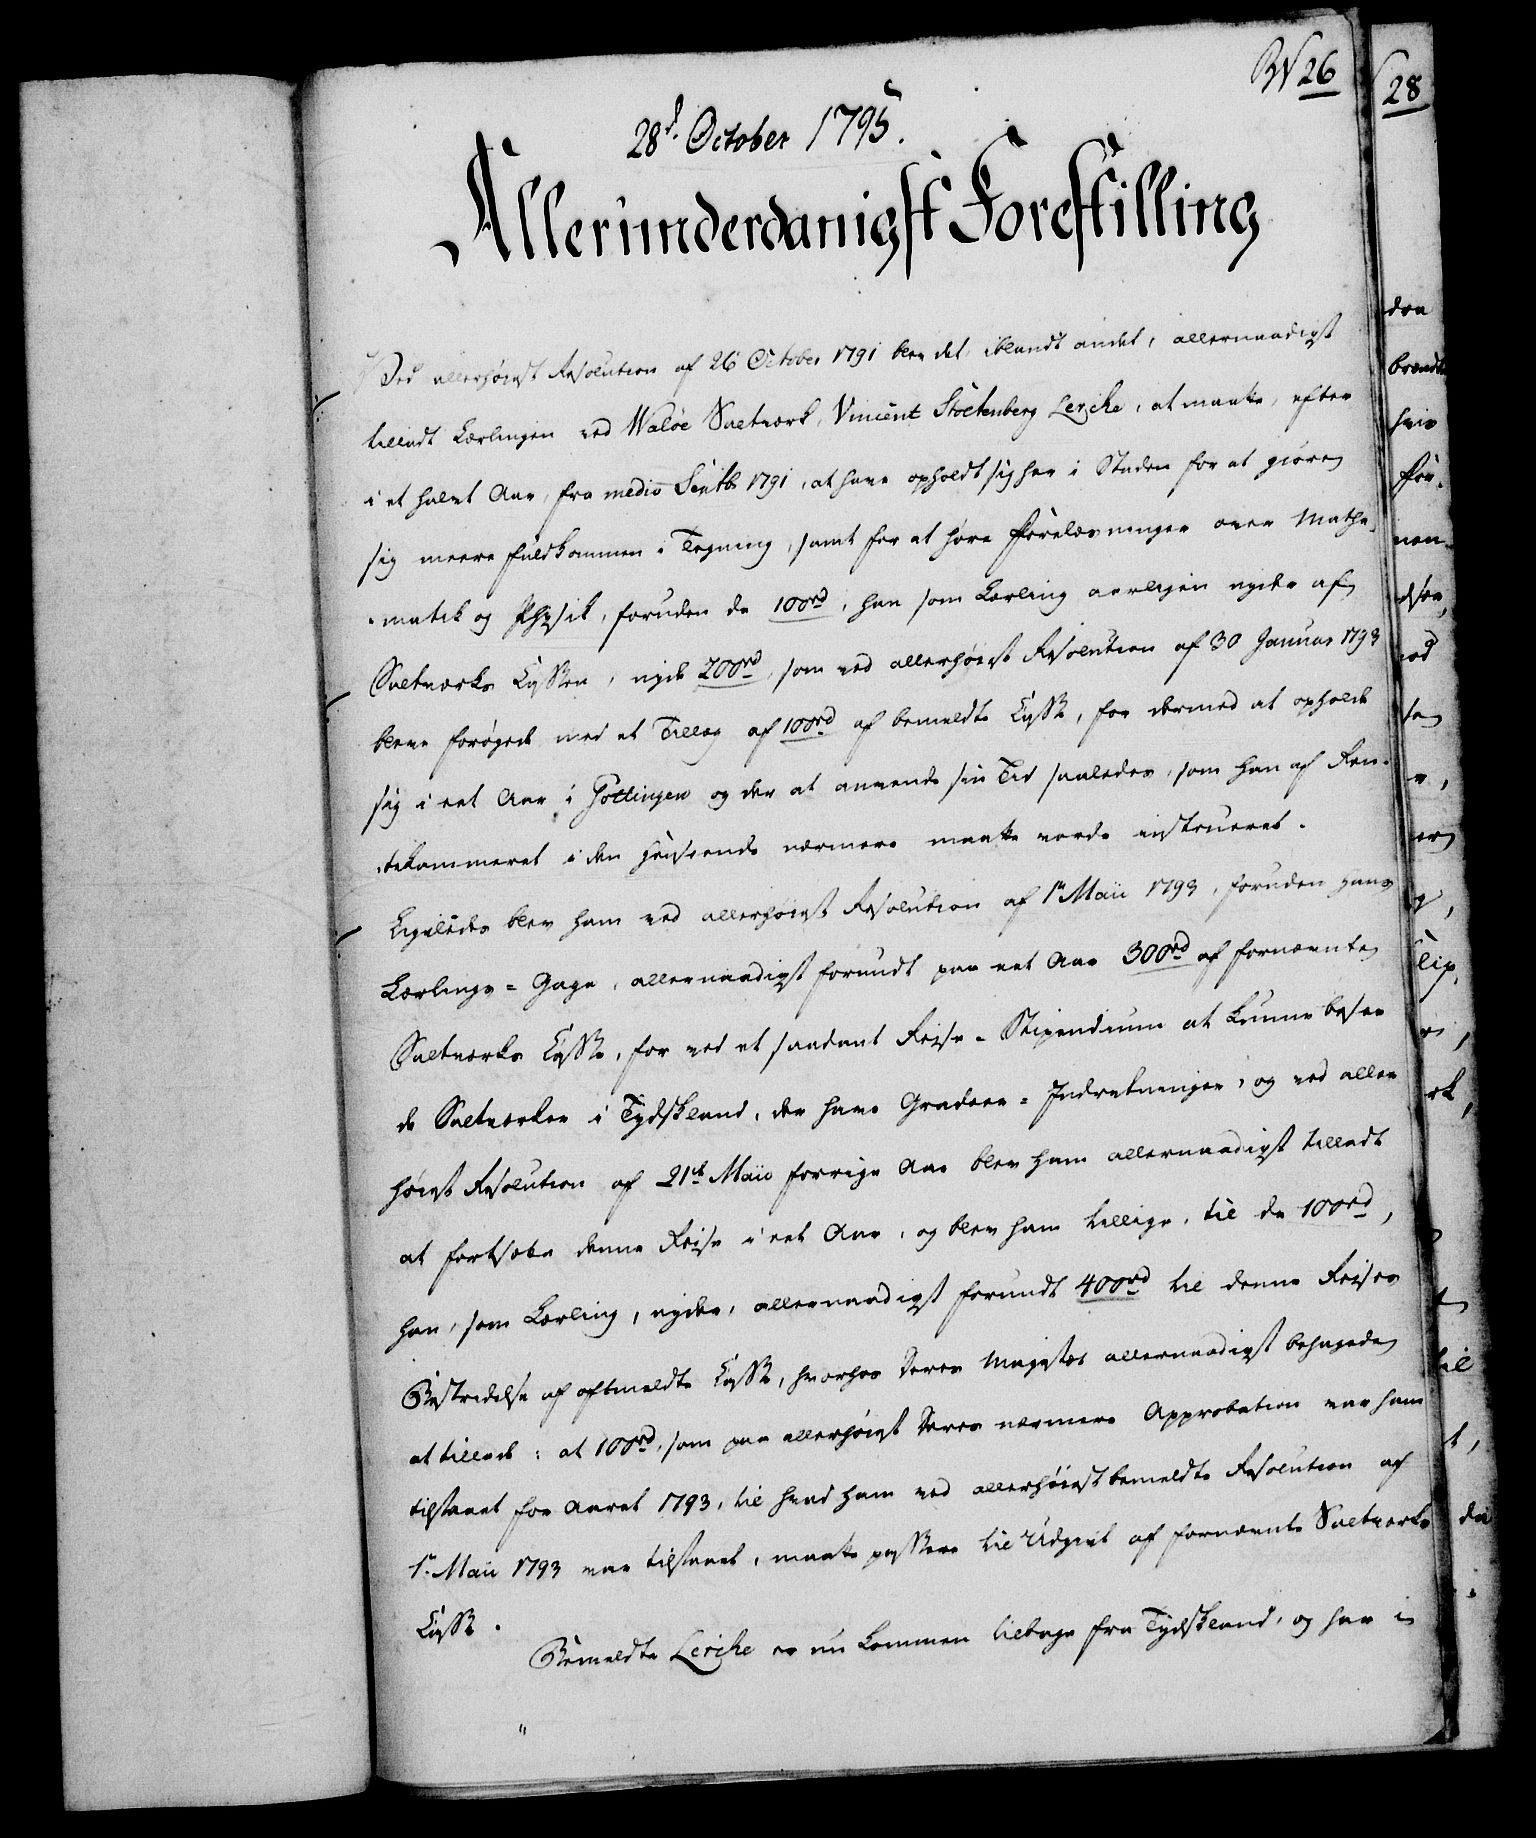 N 26
28
28d. October 1795.
Allerunderdanigst Forestilling
Ved allerhøiest Resolution af 26 October 1791 blev det, iblandt andet, allernaadigst
tilladt Lærlingen ved Waløe Saltværk, Vincent Stoltenberg Lerche, at maatte, efter
i et halvt Aar, fra medio Septb. 1791, at have opholdt sig her i Staden for at giøre
sig meere fuldkommen i Tegning, samt for at høre Forelæsninger over Mathe-
-matik og Physik, foruden de 100rd, han som Lærling aarligen nyder af
Saltværks Cassen, nyde 200rd, som ved allerhøiest Resolution af 30 Januar 1793
bleve forøgede med et Tillæg af 100rd af bemeldte Casse, for dermed at opholde
sig i eet Aar i Gøttingen og der at anvende sin Tid saaledes, som han af Ren-
-tekammeret i den Henseende nærmere maatte vorde instrueret.
Ligeledes blev ham ved allerhøiest Resolution af 1te Maii 1793, foruden hans
Lærlings-Gage, allernaadigst forundt paa eet Aar 300rd af fornævnte
Saltværks Casse, for ved et saadant Reise-Stipendium at kunne besee
de Saltværker i Tydskland, der have Gradeer-Indretninger, og ved aller-
høiest Resolution af 21de Maii forrige Aar blev ham allernaadigst tilladt
at fortsætte denne Reise i eet Aar, og blev ham tillige, til de 100rd,
han, som Lærling, nyder, allernaadigst forundt 400rd til denne Reises
Bestridelse af oftmeldte Casse, hvorhos Deres Majestæt allernaadigst behagede
at tillade: at 100rd, som paa allerhøiest Deres nærmere Approbation var ham
tilstaaet for Aaret 1793, til hvad ham ved allerhøiestbemeldte Resolution af
1te Maii 1793 var tilstaaet, maatte passere til Udgivt af fornævnte Saltværks
Casse.
Bemeldte Lerche er nu kommen tilbage fra Tydskland, og har i